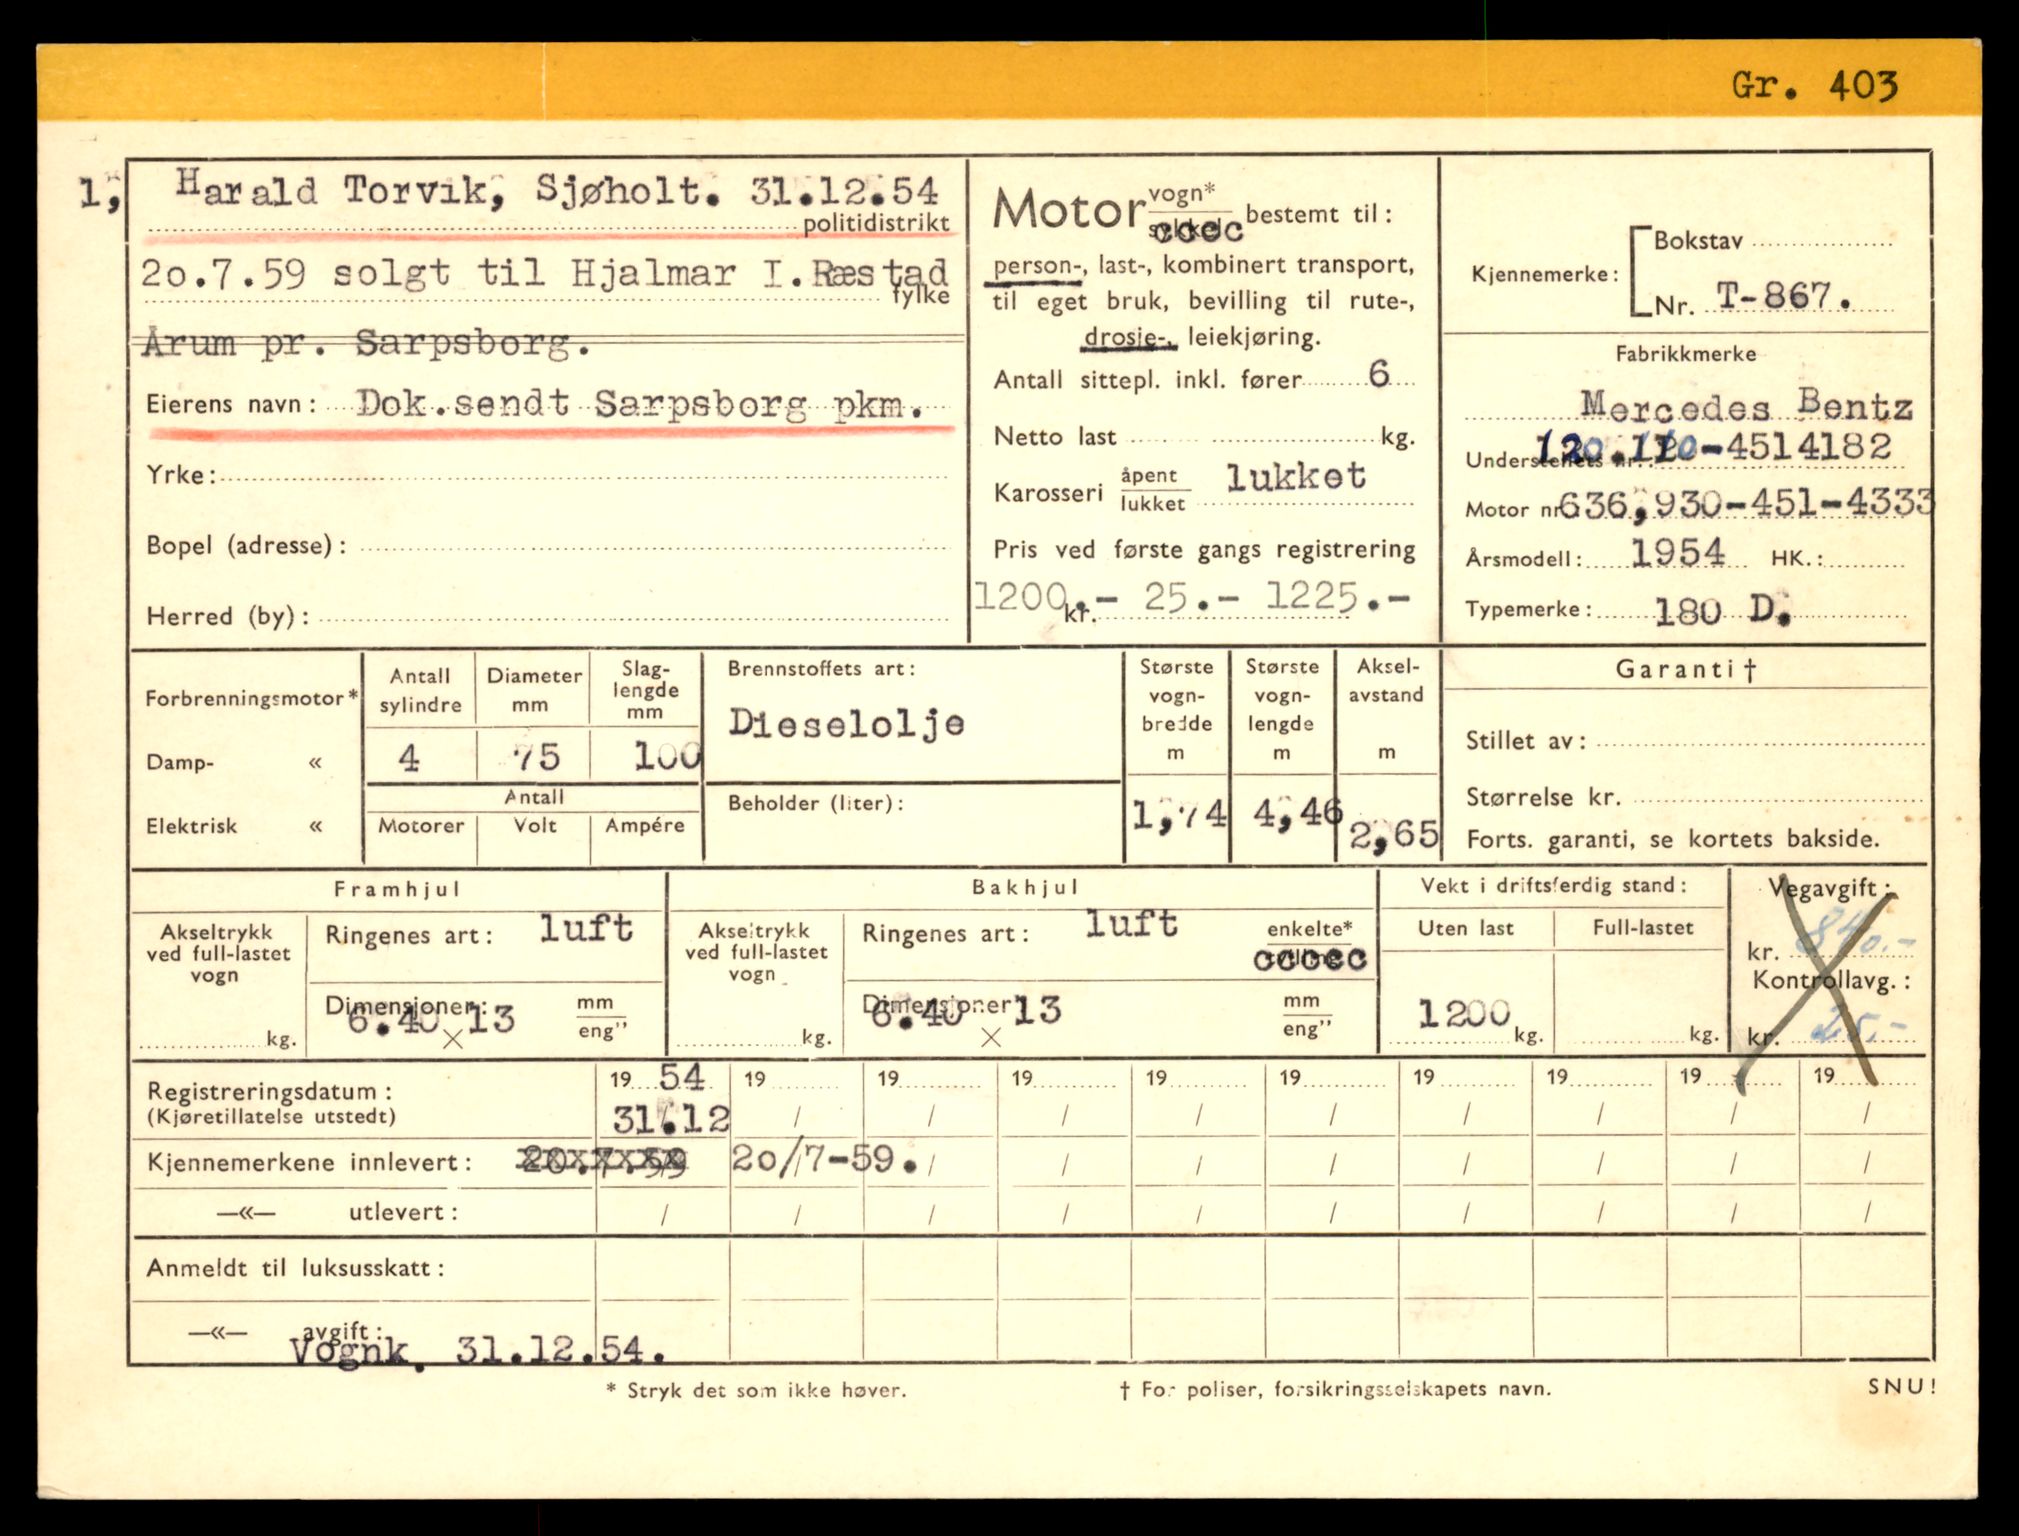 Gr. 403
1, Harald Torvik, Sjøholt. 31.12.54
politidistrikt
20.7.59 solgt til Hjalmar I. Ræstad
fylke
Årum pr. Sarpsborg.
Eierens navn: Dok.sendt Sarpsborg pkm.
Yrke:
Bopel (adresse):
Herred (by):
Motor vogn* bestemt til:
person-, last-, kombinert transport,
til eget bruk, bevilling til rute-,
drosje-, leiekjøring.
Antall sittepl. inkl. fører 6
Netto last kg.
Karosseri åpent lukket lukket
Pris ved første gangs registrering
1200.- 25.- 1225.-
kr.
Kjennemerke: Bokstav
Nr. T-867.
Fabrikkmerke
Mercedes Bentz
Understellets nr. 120.110-4514182
Motor nr. 636,930-451-4333
Årsmodell: 1954 HK.:
Typemerke: 180 D.
Forbrenningsmotor*
Damp- «
Elektrisk «
Antall sylindre
Diameter mm
Slag-lengde mm
4 75 100
Antall
Motorer Volt Ampére
Brennstoffets art:
Dieselolje
Beholder (liter):
Største vogn-bredde m
1,74
Største vogn-lengde m
4,46
Aksel-avstand m
2,65
Garanti †
Stillet av:
Størrelse kr.
Forts. garanti, se kortets bakside.
Framhjul
Akseltrykk
ved full-lastet
vogn
kg.
Ringenes art: luft
Dimensjoner: mm
6.40 × 13 eng”
Bakhjul
Akseltrykk
ved full-lastet
vogn
kg.
Ringenes art: luft enkelte*
ccccc
Dimensjoner: mm
6.40 × 13 eng”
Vekt i driftsferdig stand:
Uten last Full-lastet
1200 kg. kg.
Vegavgift:
kr. 840.-
Kontrollavg.:
kr. 25.-
Registreringsdatum: 19 54 19 19 19 19 19 19 19 19 19
(Kjøretillatelse utstedt) 31.12 / / / / / / / / /
Kjennemerkene innlevert: 20.7.59 20/7-59. / / / / / / / /
—«— utlevert: / / / / / / / / / /
Anmeldt til luksusskatt:
—«— avgift:
Vognk. 31.12.54.
* Stryk det som ikke høver. † For poliser, forsikringsselskapets navn. SNU!